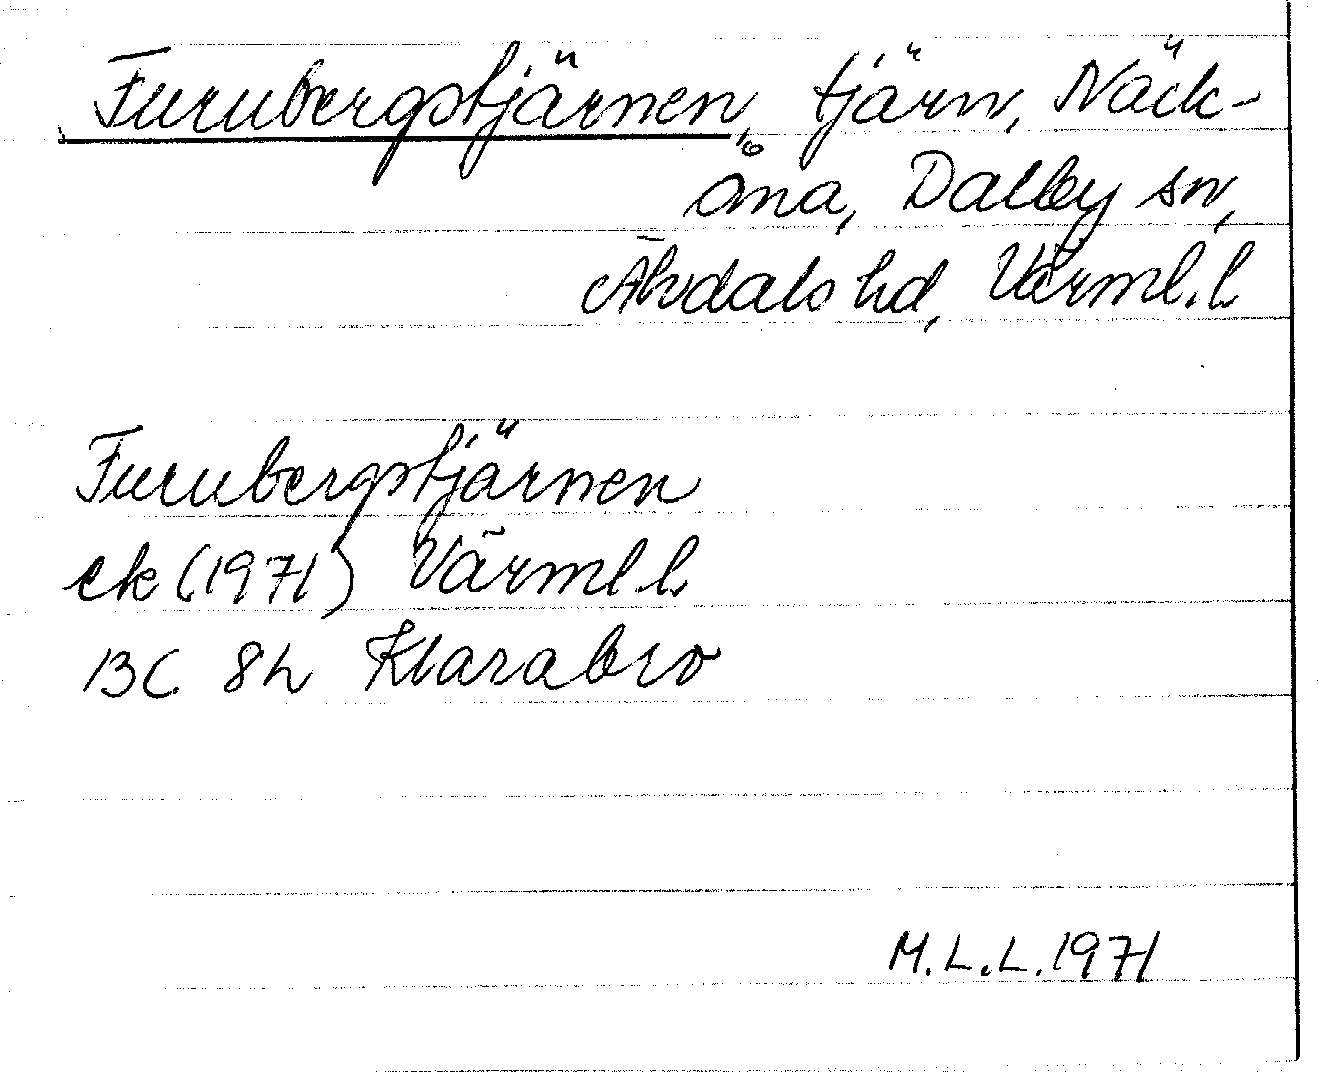 Furubergstjärnen, tjärn, Näck-
åna, Dalby sn,
Älvdals hd, Värml. l.
Furubergstjärnen
ek (1971) Värml l.
13C 8h Klarabro
M.L.L. 1971